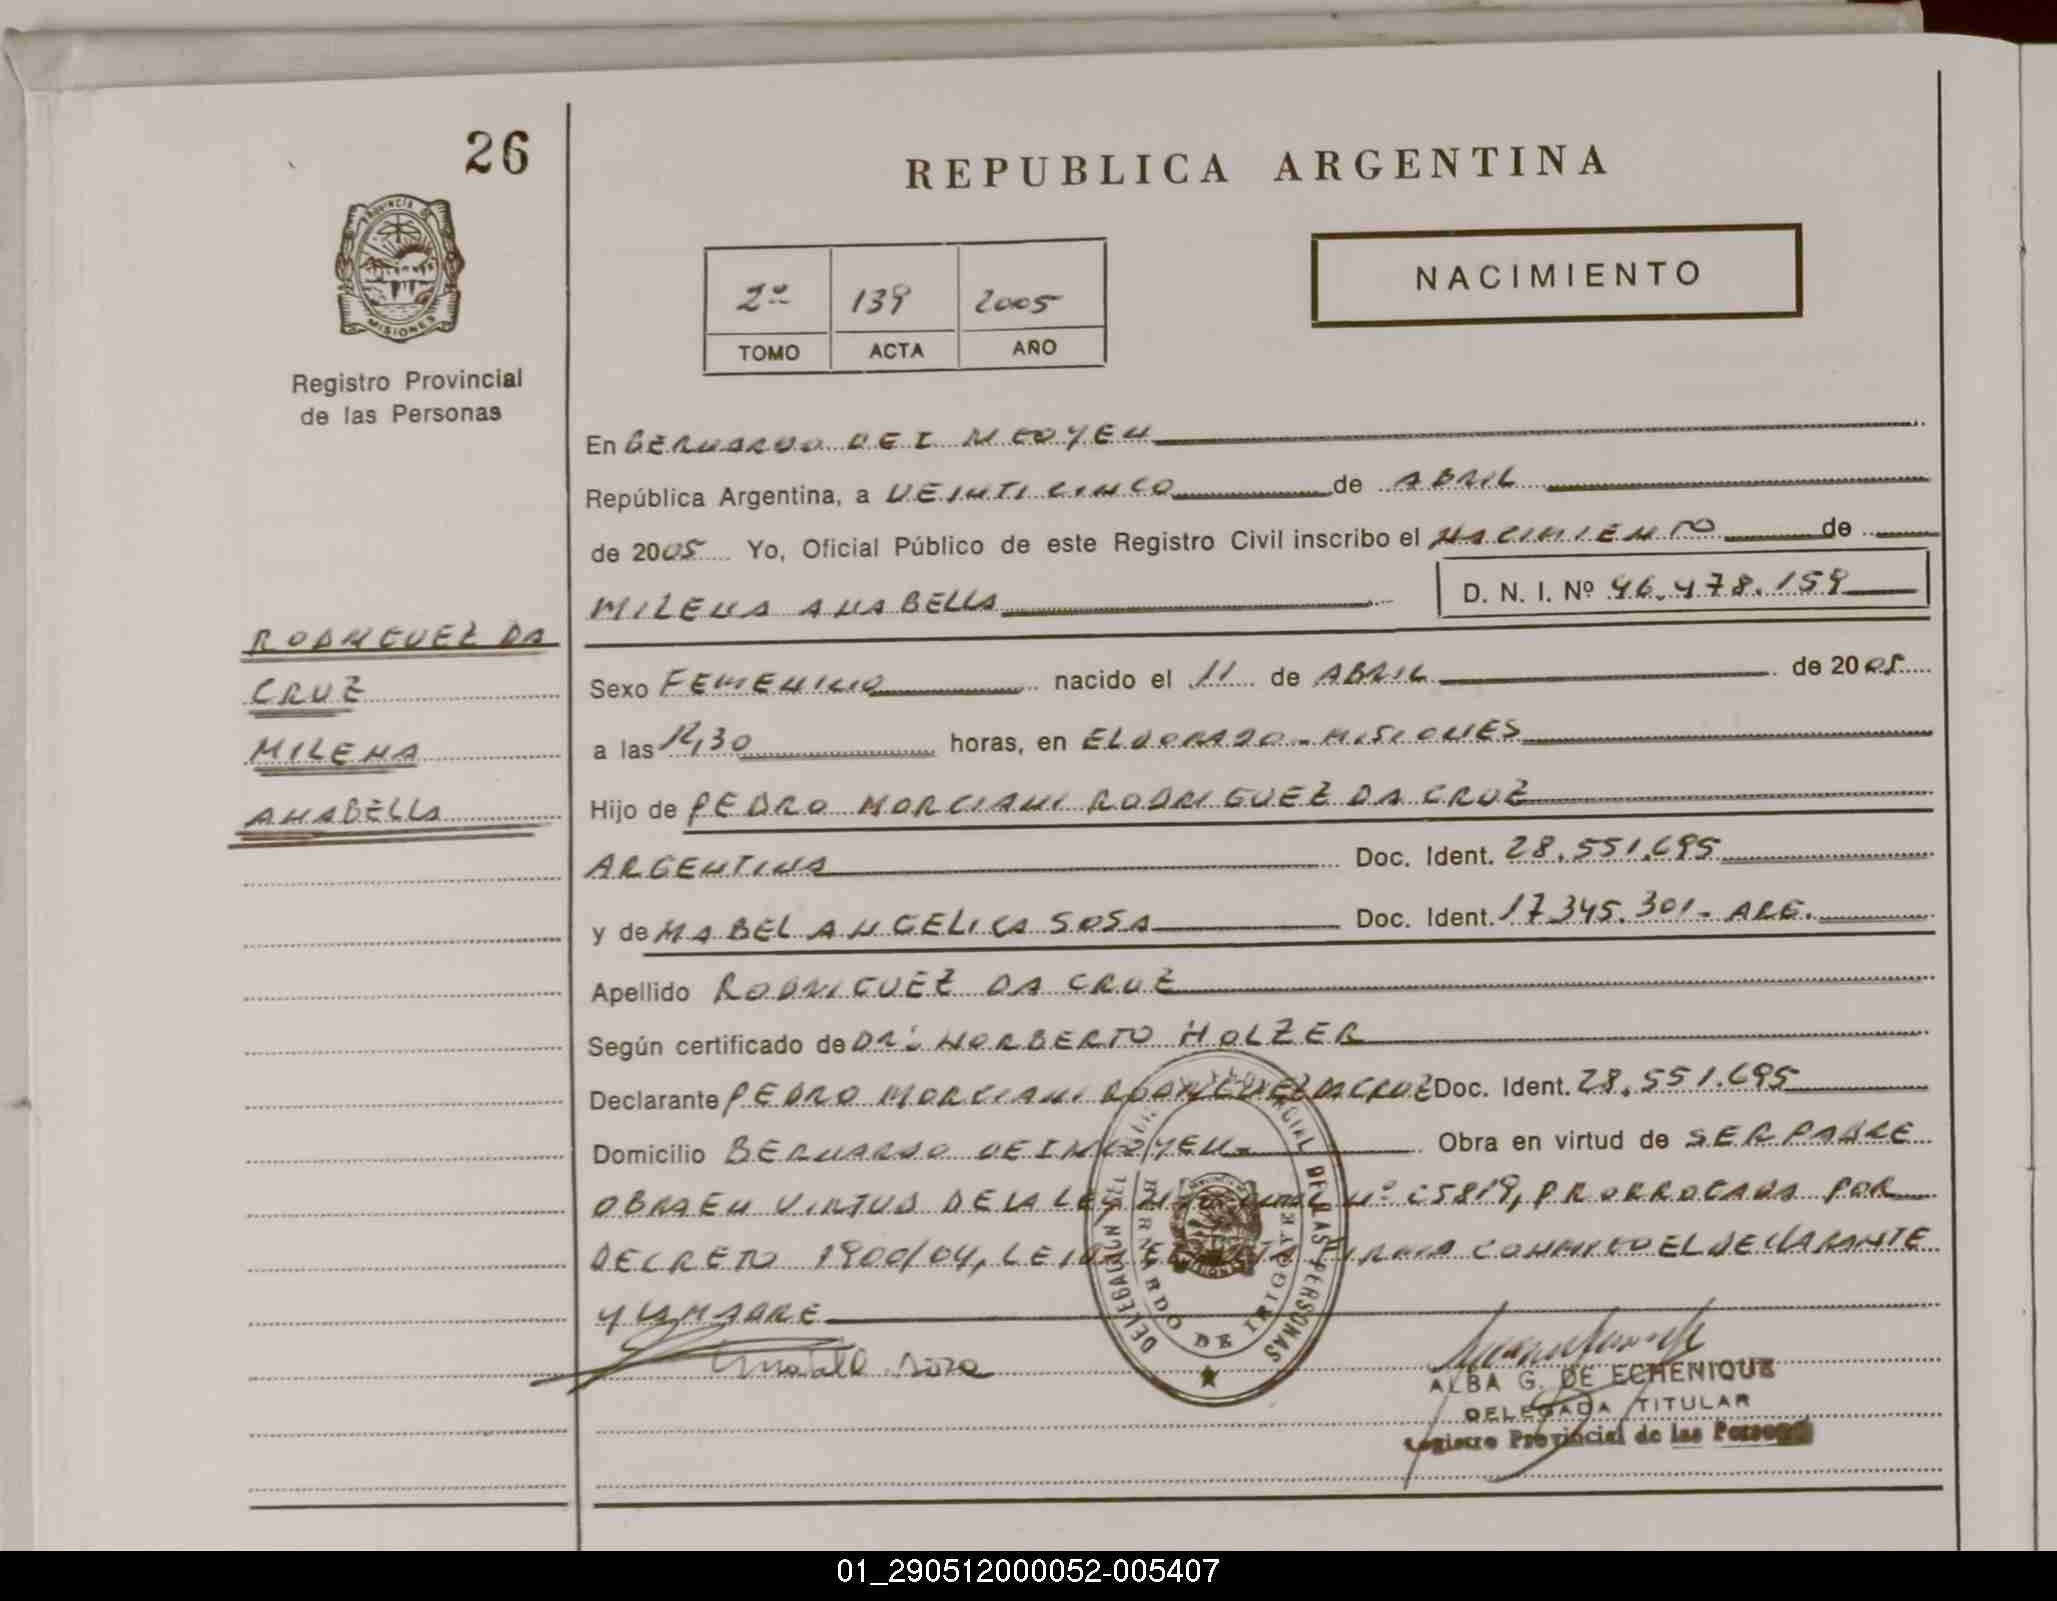 26
REPUBLICA ARGENTINA
PROVINCIA DE
MISIONES
Registro Provincial
de las Personas
2º 139 2005
TOMO ACTA AÑO
NACIMIENTO
En BERNARDO DE IRIGOYEN
República Argentina, a VEINTICINCO de ABRIL
de 2005 Yo, Oficial Público de este Registro Civil inscribo el NACIMIENTO de
MILENA ANABELLA
D. N. I. Nº 46.478.159
RODRIGUEZ DA
CRUZ
MILENA
ANABELLA
Sexo FEMENINO nacido el 11 de ABRIL de 2005
a las 12,30 horas, en ELDORADO - MISIONES
Hijo de PEDRO MORCIANI RODRIGUEZ DA CRUZ
ARGENTINA Doc. Ident. 28.551.695
y de MABEL ANGELICA SOSA Doc. Ident. 17.345.301 - ARG.
Apellido RODRIGUEZ DA CRUZ
Según certificado de DR: NORBERTO HOLZER
Declarante PEDRO MORCIANI RODRIGUEZ DA CRUZ Doc. Ident. 28.551.695
Domicilio BERNARDO DE IRIGOYEN - Obra en virtud de SER PADRE
OBRA EN VIRTUD DE LA LEY NACIONAL Nº 25819, PRORROGADA POR
DECRETO 1900/04, LEIDA EL ACTA FIRMA CONMIGO EL DECLARANTE
Y LA MADRE
Sosa
DELEGACION DEL REGISTRO PROVINCIAL DE LAS PERSONAS
BERNARDO DE IRIGOYEN
MISIONES
ALBA G. DE ECHENIQUE
DELEGADA TITULAR
Registro Provincial de las Personas
01_290512000052-005407